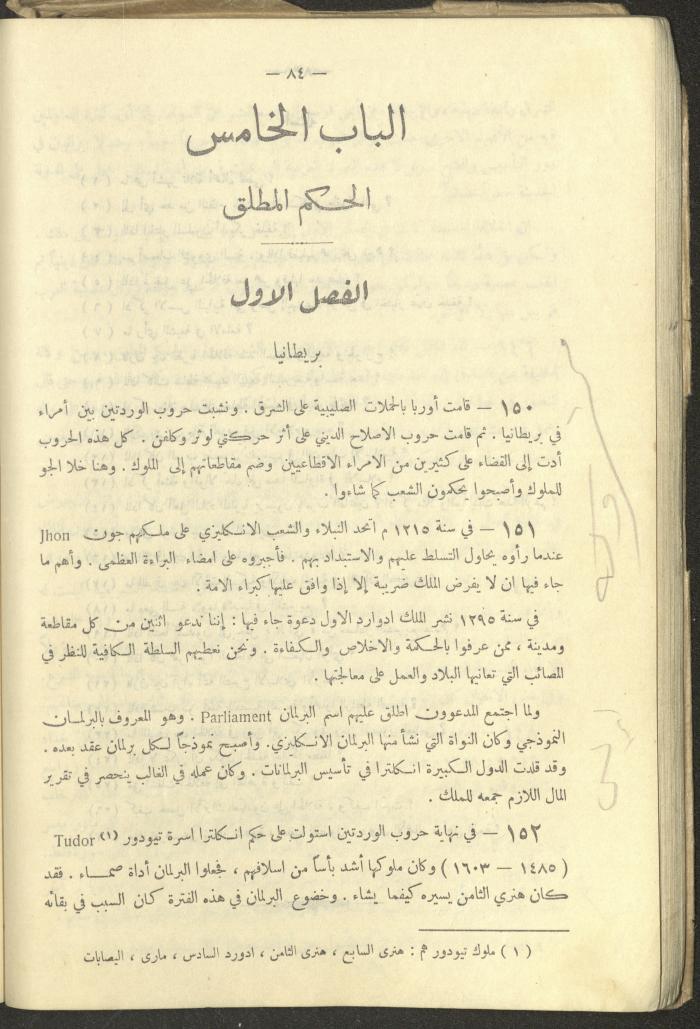 — ٨٤ —
الباب الخامس
الحكم المطلق
الفصل الاول
بريطانيا
١٥٠ — قامت أوربا بالحملات الصليبية على الشرق . ونشبت حروب الوردتين بين أمراء
في بريطانيا . ثم قامت حروب الاصلاح الديني على أثر حركتي لوثر وكلفن . كل هذه الحروب
أدت إلى القضاء على كثيرين من الامراء الاقطاعيين وضم مقاطعاتهم إلى الملوك . وهنا خلا الجو
للملوك وأصبحوا يحكمون الشعب كما شاءوا .
١٥١ — في سنة ١٢١٥ م اتحد النبلاء والشعب الانكليزي على ملكهم جون Jhon
عندما رأوه يحاول التسلط عليهم والاستبداد بهم . فأجبروه على امضاء البراءة العظمى . وأهم ما
جاء فيها ان لا يفرض الملك ضريبة إلا إذا وافق عليها كبراء الامة .
في سنة ١٢٩٥ نشر الملك ادوارد الاول دعوة جاء فيها : إننا ندعو اثنين من كل مقاطعة
ومدينة ، ممن عرفوا بالحكمة والاخلاص والكفاءة . ونحن نعطيهم السلطة الكافية للنظر في
المصائب التي تعانيها البلاد والعمل على معالجتها .
ولما اجتمع المدعوون اطلق عليهم اسم البرلمان Parliament . وهو المعروف بالبرلمان
النموذجي وكان النواة التي نشأ منها البرلمان الانكليزي. وأصبح نموذجاً لكل برلمان عقد بعده .
وقد قلدت الدول الكبيرة انكلترا في تأسيس البرلمانات . وكان عمله في الغالب ينحصر في تقرير
المال اللازم جمعه للملك .
١٥٢ — في نهاية حروب الوردتين استولت على حكم انكلترا اسرة تيودور (١) Tudor
( ١٤٨٥ — ١٦٠٣ ) وكان ملوكها أشد بأساً من اسلافهم ، فجعلوا البرلمان أداة صماء . فقد
كان هنري الثامن يسيره كيفما يشاء . وخضوع البرلمان في هذه الفترة كان السبب في بقائه
( ١ ) ملوك تيودور هم : هنرى السابع ، هنرى الثامن ، ادورد السادس ، مارى ، اليصابات